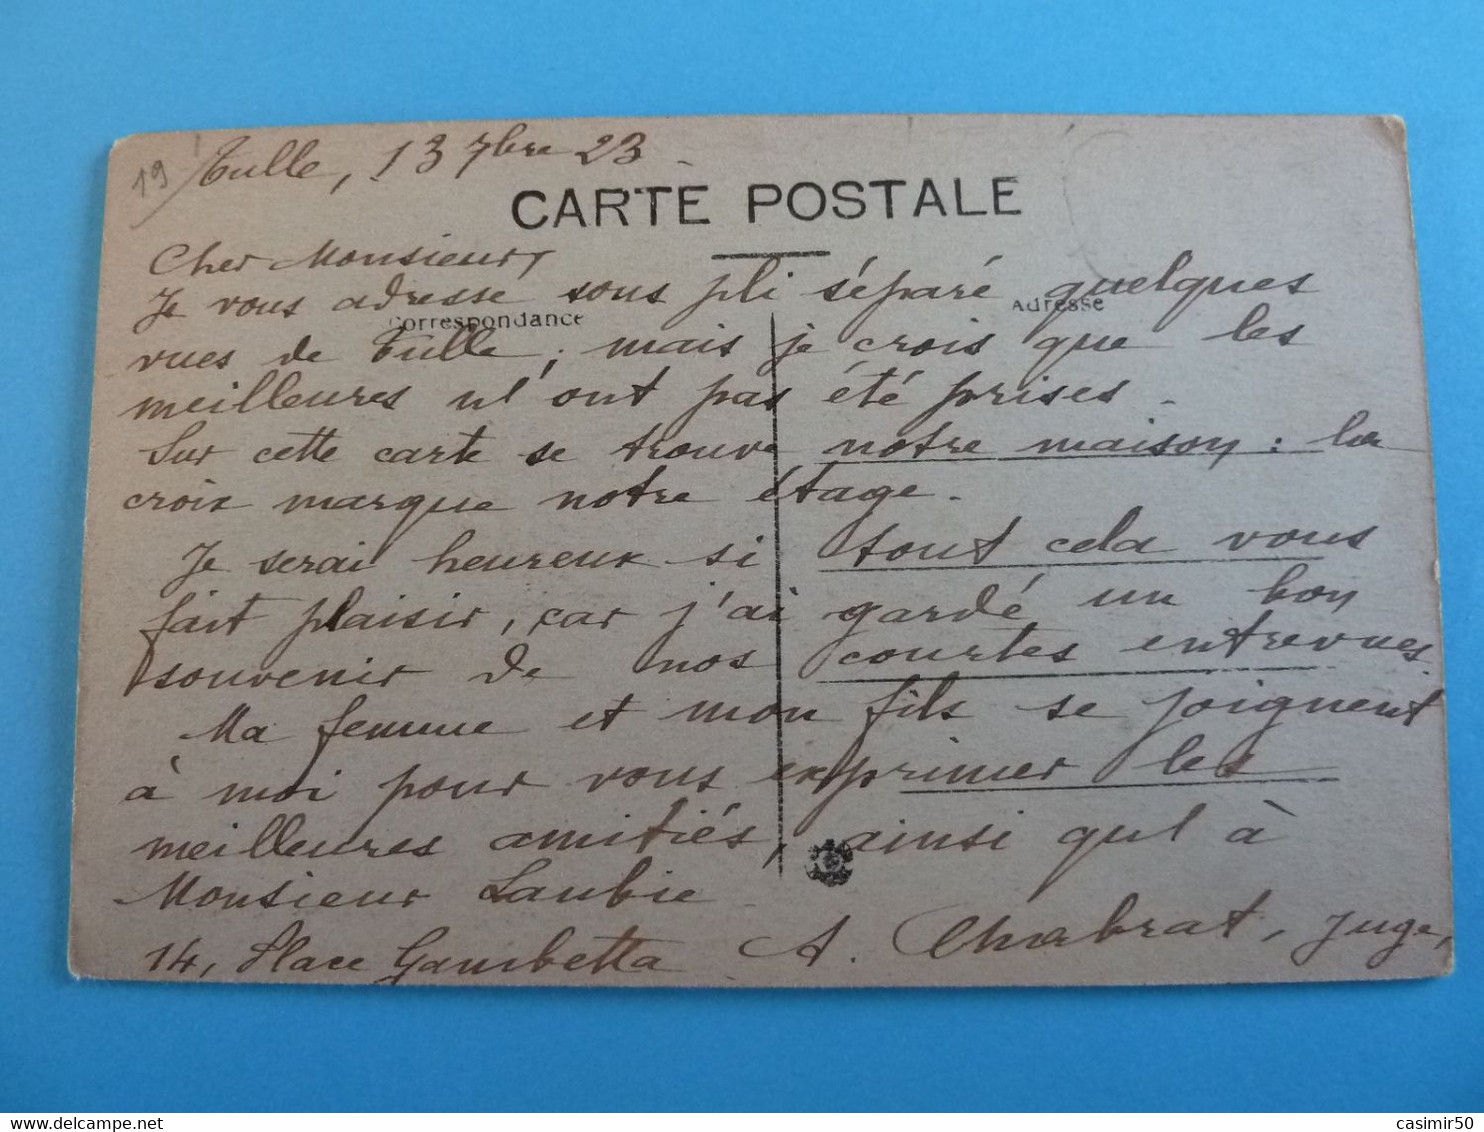 19
Tulle, 13 7bre 23.
CARTE POSTALE
Cher Monsieur,
Je vous adresse sous pli séparé quelques
Correspondance
Adresse
vues de Tulle; mais je crois que les
meilleures n'ont pas été prises.
Sur cette carte se trouve notre maison: la
croix marque notre étage.
Je serai heureux si tout cela vous
fait plaisir, car j'ai gardé un bon
souvenir de nos courtes entrevues.
Ma femme et mon fils se joignent
à moi pour vous exprimer les
meilleures amitiés, ainsi qu'à
Monsieur Laubie
14, Place Gambetta A. Chabrat, Juge,
casimir50